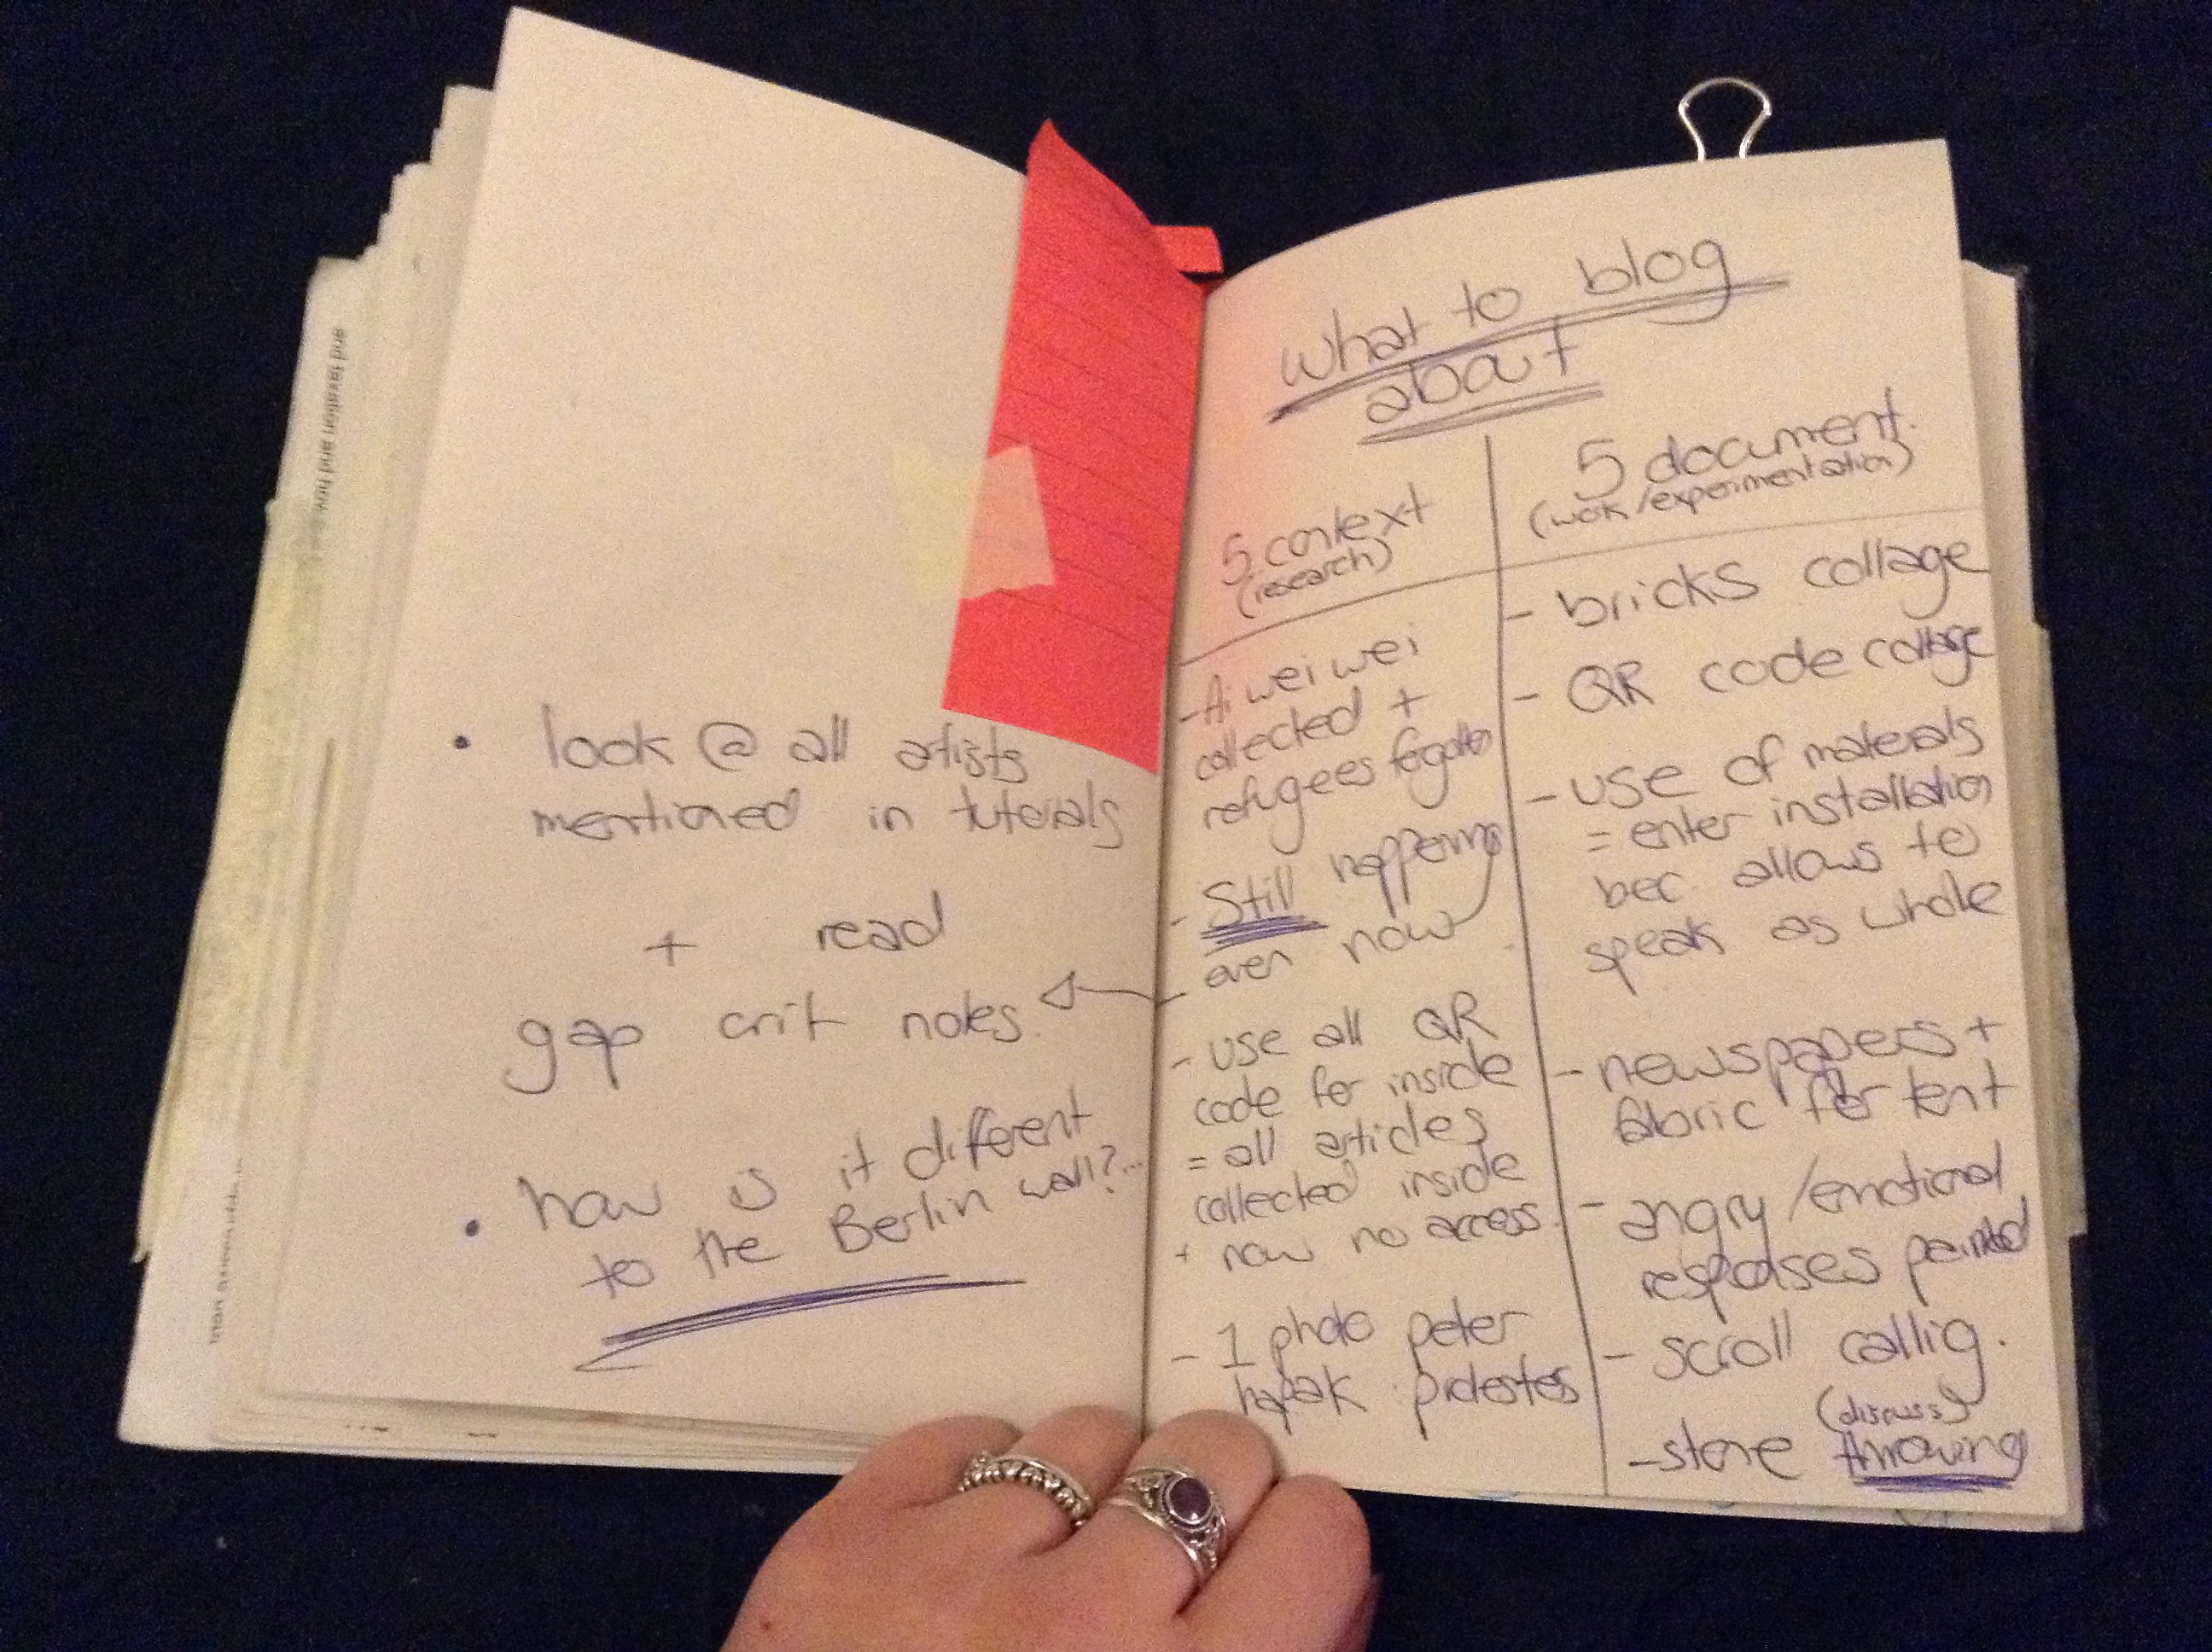 and taxation and how
than
• look @ all artists
mentioned in tutorials
+ read
gap crit notes
• how is it different
to the Berlin wall?...
what to blog
about
5 context
(research)
- Ai wei wei
collected +
refugees forgotten
- Still happening
even now
-
- use all QR
code for inside
= all articles
collected inside
+ now no access.
- 1 photo peter
hapak protestes
5 document.
(work/experimentation)
- bricks collage
- QR code collage
- use of materials
= enter installation
bec. allows to
speak as whole
- newspapers +
fabric for tent
- angry/emotional
responses painted
- scroll callig.
(discuss)
- stone throwing